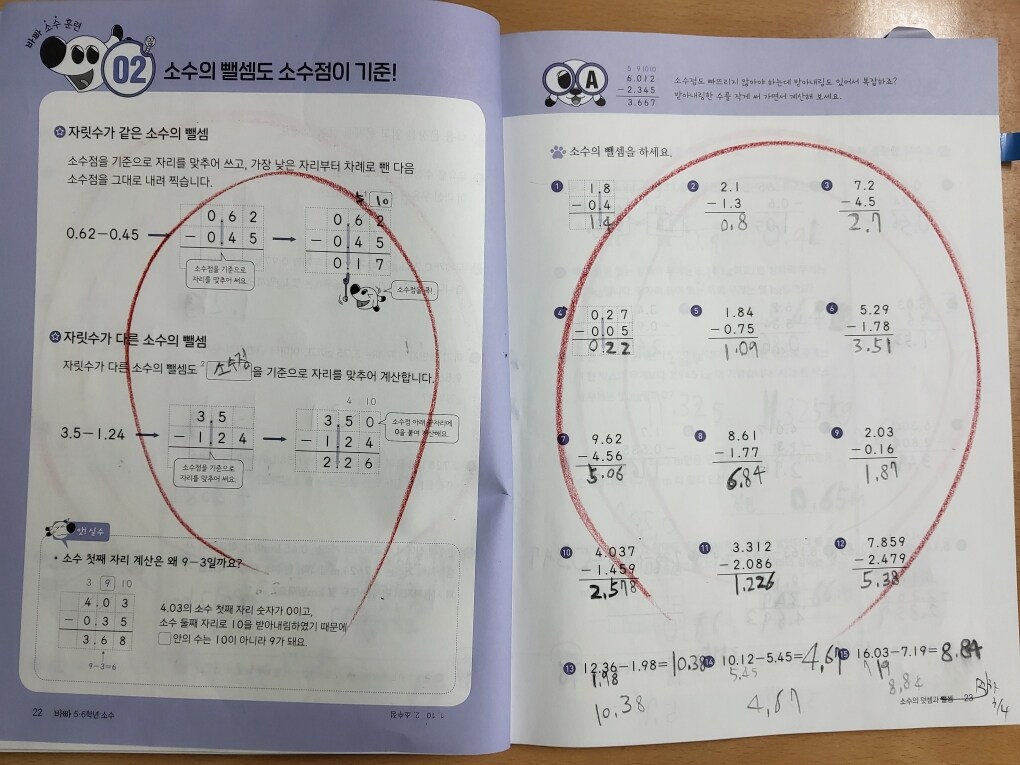 바빠 소수 훈련
02
소수의 뺄셈도 소수점이 기준!
자릿수가 같은 소수의 뺄셈
소수점을 기준으로 자리를 맞추어 쓰고, 가장 낮은 자리부터 차례로 뺀 다음
소수점을 그대로 내려 찍습니다.
5 10
0.62-0.45
0.62
-0.45
소수점을 기준으로
자리를 맞추어 써요.
0.62
-0.45
0.17
소수점을 콕!
자릿수가 다른 소수의 뺄셈
자릿수가 다른 소수의 뺄셈도 2 소수점 을 기준으로 자리를 맞추어 계산합니다.
3.5-1.24
3.5
-1.24
소수점을 기준으로
자리를 맞추어 써요.
4 10
3.50
-1.24
2.26
소수점 아래 끝자리에
0을 붙여 계산해요.
앗! 실수
• 소수 첫째 자리 계산은 왜 9-3일까요?
3 9 10
4.03
-0.35
3.68
9-3=6
4.03의 소수 첫째 자리 숫자가 0이고,
소수 둘째 자리로 10을 받아내림하였기 때문에
안의 수는 10이 아니라 9가 돼요.
22 바빠 5·6학년 소수
1. 10 2. 소수점
A
5 9 10 10
6.012
-2.345
3.667
소수점도 빠뜨리지 않아야 하는데 받아내림도 있어서 복잡하죠?
받아내림한 수를 작게 써 가면서 계산해 보세요.
소수의 뺄셈을 하세요.
1 1.8
-0.4
1.4
2 2.1
-1.3
0.8
3 7.2
-4.5
2.7
4 0.27
-0.05
0.22
5 1.84
-0.75
1.09
6 5.29
-1.78
3.51
7 9.62
-4.56
5.06
8 8.61
-1.77
6.84
9 2.03
-0.16
1.87
10 4.037
-1.459
2.578
11 3.312
-2.086
1.226
12 7.859
-2.479
5.38
13 12.36-1.98=10.38
1.98
10.38
14 10.12-5.45=4.67
5.45
4.67
15 16.03-7.19=8.84
7.19
8.84
소수의 덧셈과 뺄셈 23